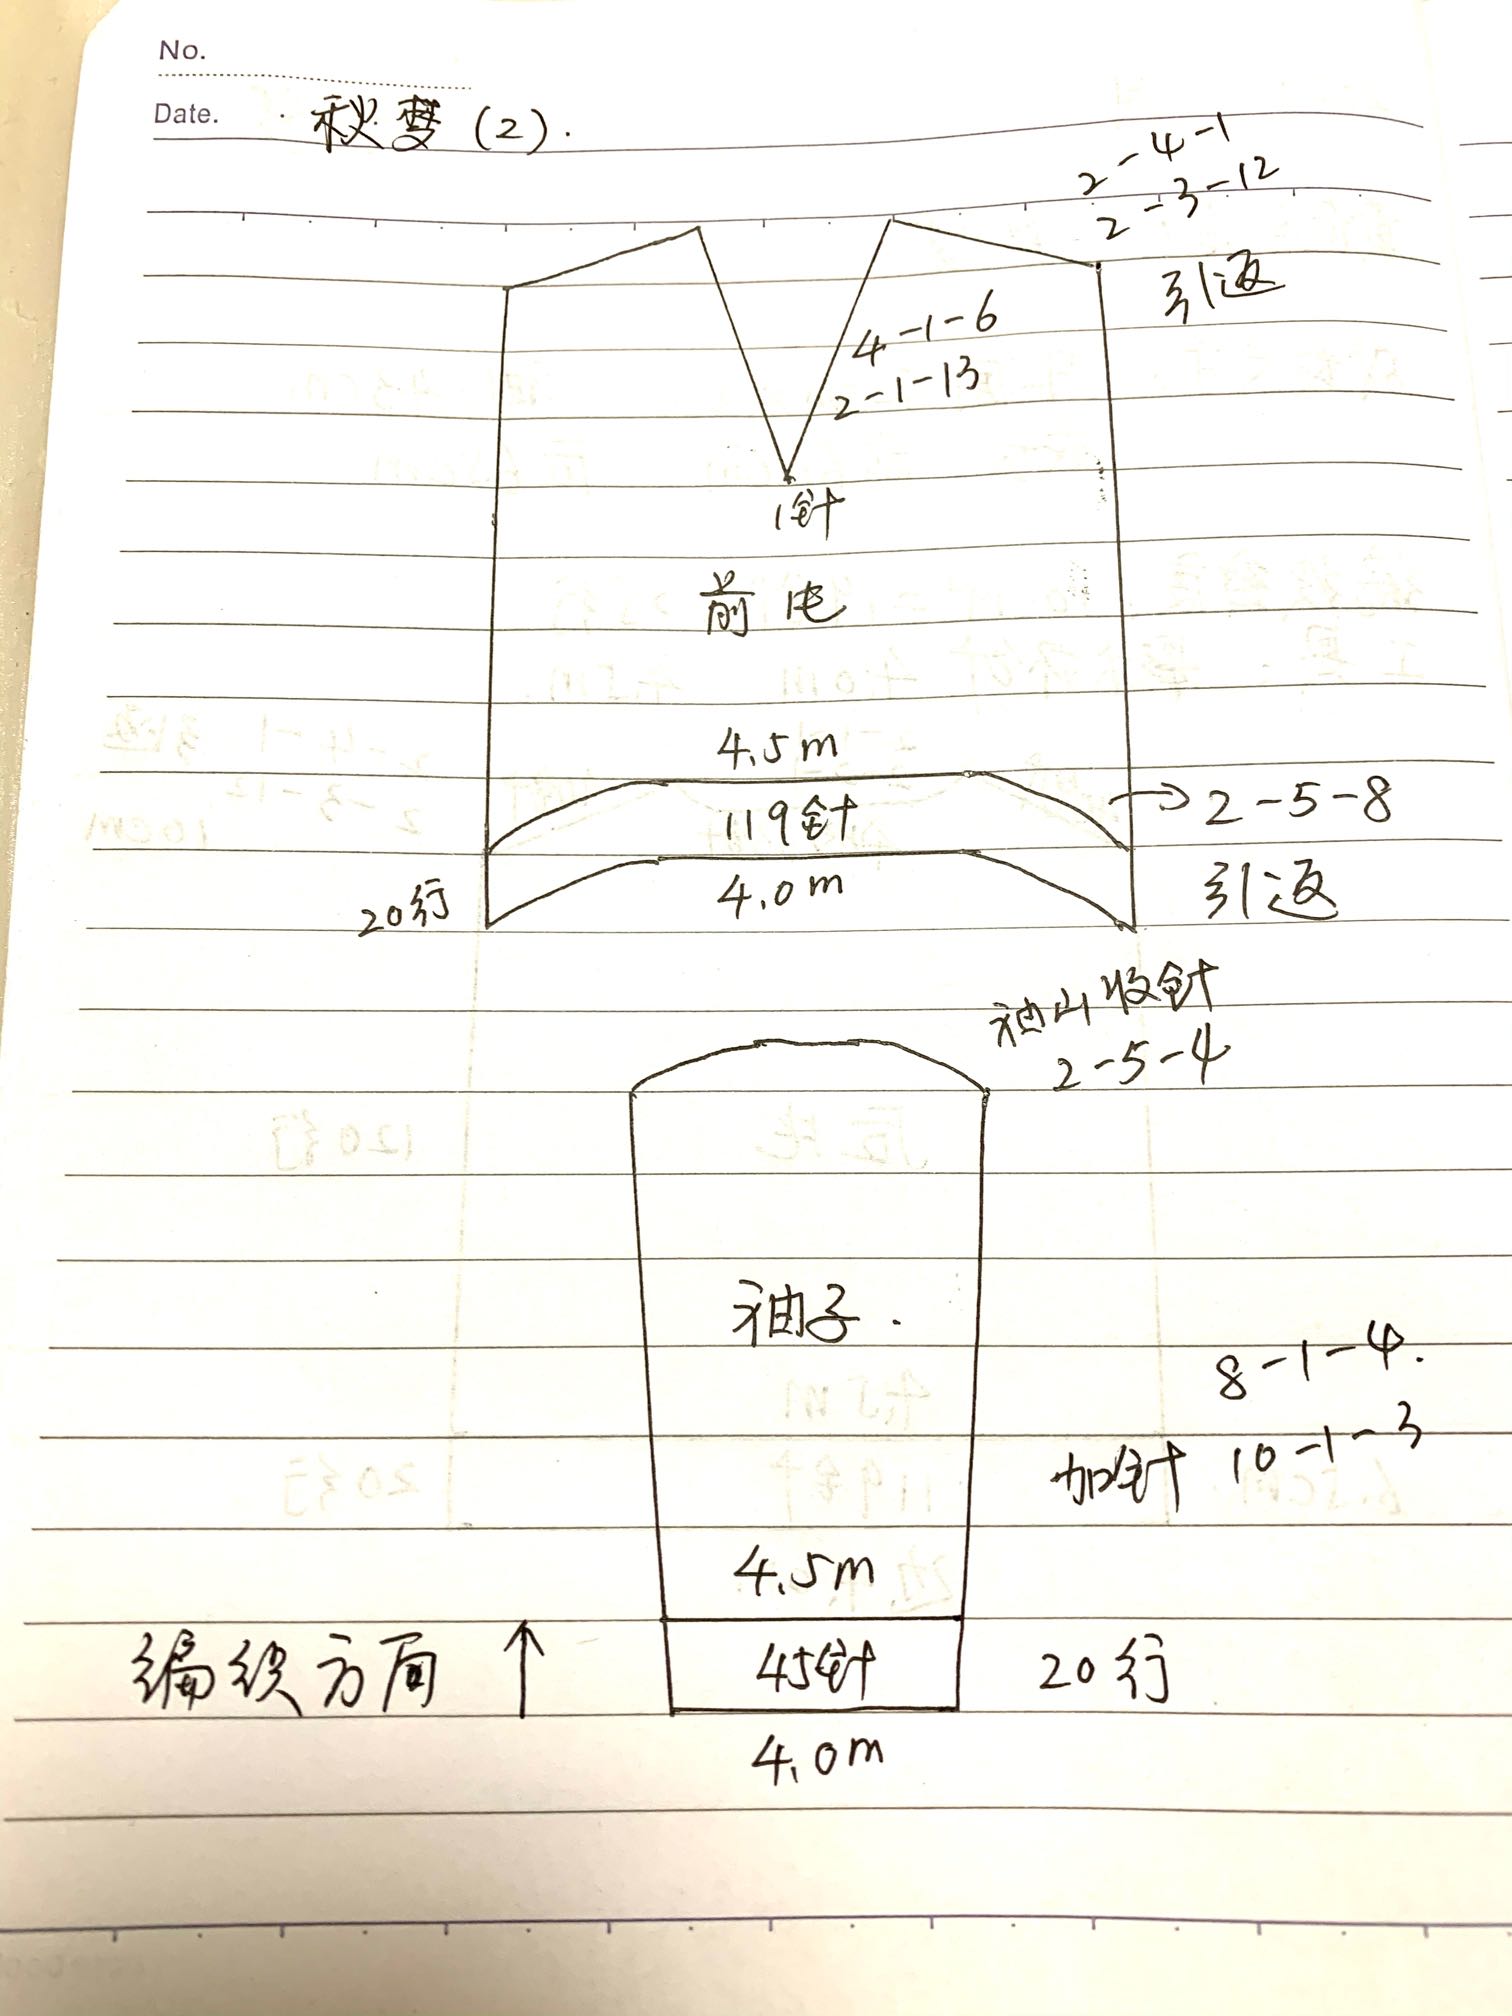 No.
Date. 秋梦 (2).
2-4-1
2-3-12
引返
4-1-6
2-1-13
1针
前片
4.5m
119针
→ 2-5-8
4.0m
20行
引返
袖山收针
2-5-4
袖子.
8-1-4.
加针 10-1-3
4.5m
编织方向 ↑ 45针 20行
4.0m